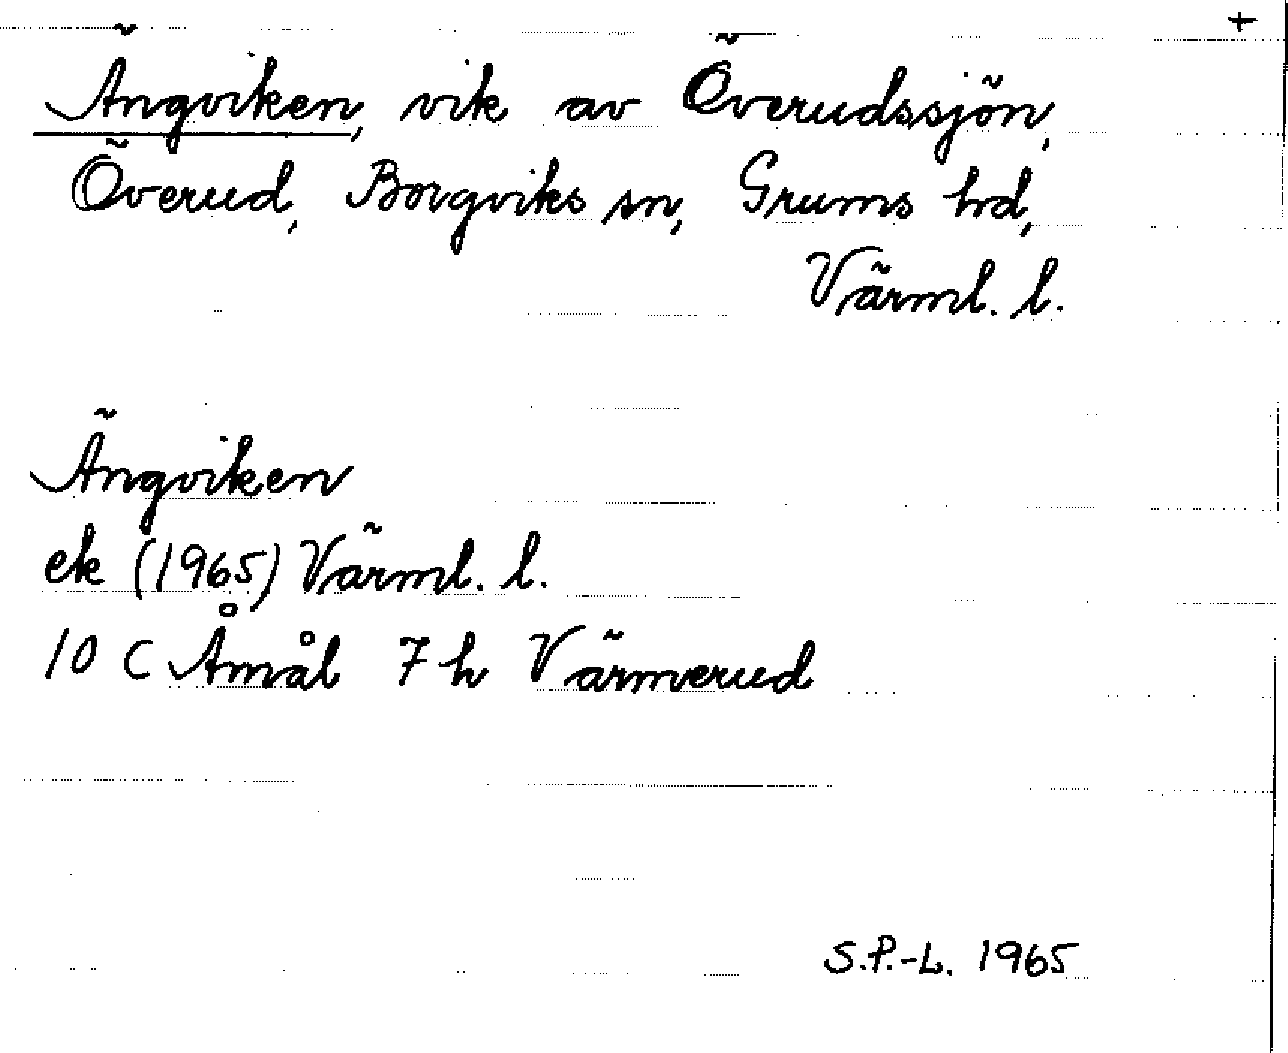 +
Ängviken, vik av Överudssjön,
Överud, Borgviks sn, Grums hd,
Värml. l.
Ängviken
ek (1965) Värml. l.
10 C Åmål 7 h Värmverud
S.P.-L. 1965